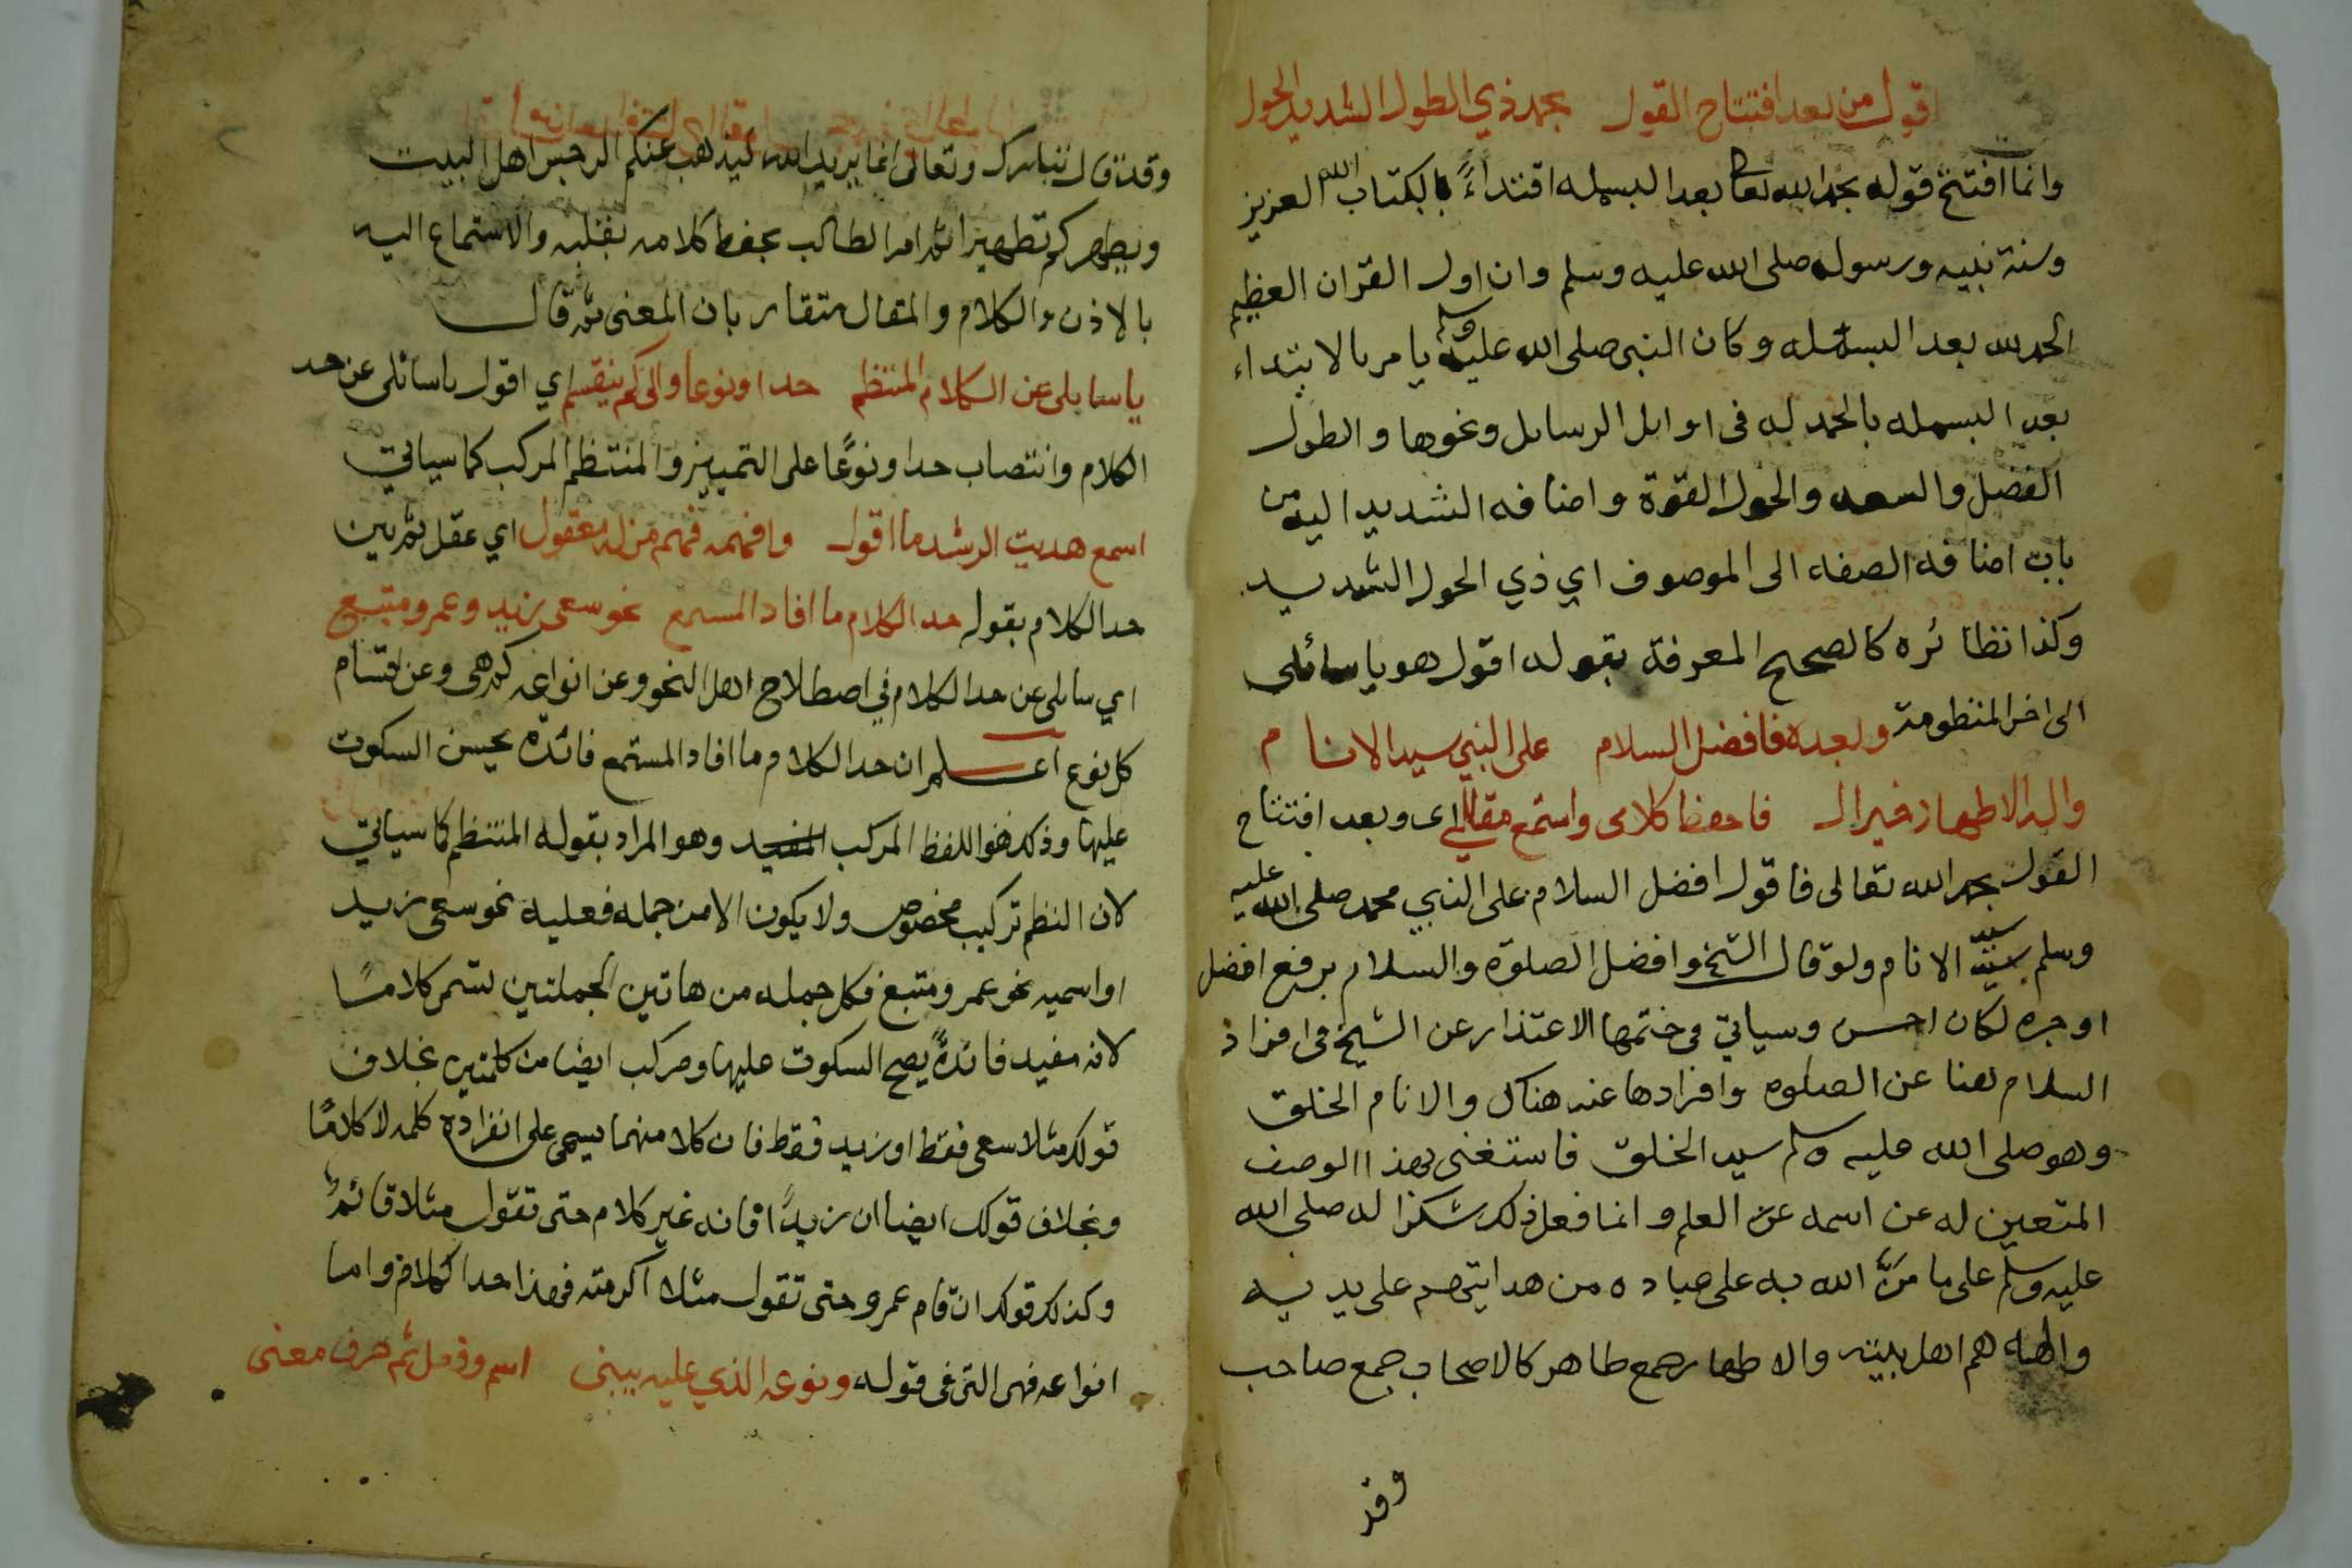 اقول من بعد افتتاح القول بحمد ذي الطول الشديد الحول
وانما افتتح قوله بحمد الله تعالى بعد البسمله اقتداءً بالكتاب الله العزيز
وسنة نبيه ورسوله صلى الله عليه وسلم وان اول القران العظيم
الحمد لله بعد البسمله وكان النبي صلى الله عليه وسلم يامر بالابتداء
بعد البسمله بالحمد له في اوايل الرسايل ونحوها والطول
الفضل والسعه والحول القوة واضافه الشديد اليه من
باب اضافه الصفه الى الموصوف اي ذي الحول الشديد
وكذا نظائره كالصحيح المعرفة بقوله اقول هو يا سائلي
الى اخر المنظومة وبعده فافضل السلام على النبي سيد الانام
واله الاطهار خير ال فاحفظ كلامى واستمع مقالي اى وبعد افتتاح
القول بحمد الله تعالى فاقول افضل السلام على النبي محمد صلى الله عليه
وسلم سيد الانام ولو قال الشيخ وافضل الصلوة والسلام برفع افضل
او جره لكان احسن وسياتي في ختمها الاعتذار عن الشيخ في افراد
السلام هنا عن الصلوه وافرادها عنه هناك والانام الخلق
وهو صلى الله عليه وسلم سيد الخلق فاستغنى بهذا الوصف
المتعين له عن اسمه عن العلم وانما فعل ذلك شكرا له صلى الله
عليه وسلم على ما منَّ الله به على عباده من هدايتهم على يديه
واله هم اهل بيته والاطهار جمع طاهر كالاصحاب جمع صاحب
وقد
وقد قال تبارك وتعالى انما يريد الله ليذهب عنكم الرجس اهل البيت
ويطهركم تطهيرا ثم امر الطالب بحفظ كلامه بقلبه والاستماع اليه
بالاذن والكلام والمقال متقاربان المعنى ثم قال
يا سايلى عن الكلام المنتظم حدا ونوعا والى كم ينقسم اي اقول يا سائلى عن حد
الكلام وانتصاب حدا ونوعًا على التمييز والمنتظم المركب كما سياتي
اسمع هديت الرشد ما اقول وافهمه فهم من له معقول اي عقل ثم بين
حد الكلام بقوله حد الكلام ما افاد المستمع نحو سعى زيد وعمرو متبع
اي سايلى عن حد الكلام في اصطلاح اهل النحو وعن انواعه كم هى وعن اقسام
كل نوع اعلم ان حد الكلام ما افاد المستمع فائدة يحسن السكوت
عليها وذلك هو اللفظ المركب المفيد وهو المراد بقوله المنتظم كما سياتي
لان النظم تركيب مخصوص ولا يكون الا من جمله فعليه نحو سعى زيد
او اسميه نحو عمرو متبع فكل جمله من هاتين الجملتين تسمى كلامًا
لانه مفيد فائدةً يصح السكوت عليها ومركب ايضا من كلمتين بخلاف
قولك مثلا سعى فقط او زيد فقط فان كلا منهما يسمى على انفراده كلمه لا كلامًا
وبخلاف قولك ايضا ان زيدًا فانه غير كلام حتى تقول مثلا قائمٌ
وكذلك قولك ان قام عمرو حتى تقول مثلا اكرمته فهذا حد الكلام واما
انواعه فهى التى فى قوله ونوعه الذي عليه يبنى اسم وفعل ثم حرف معنى